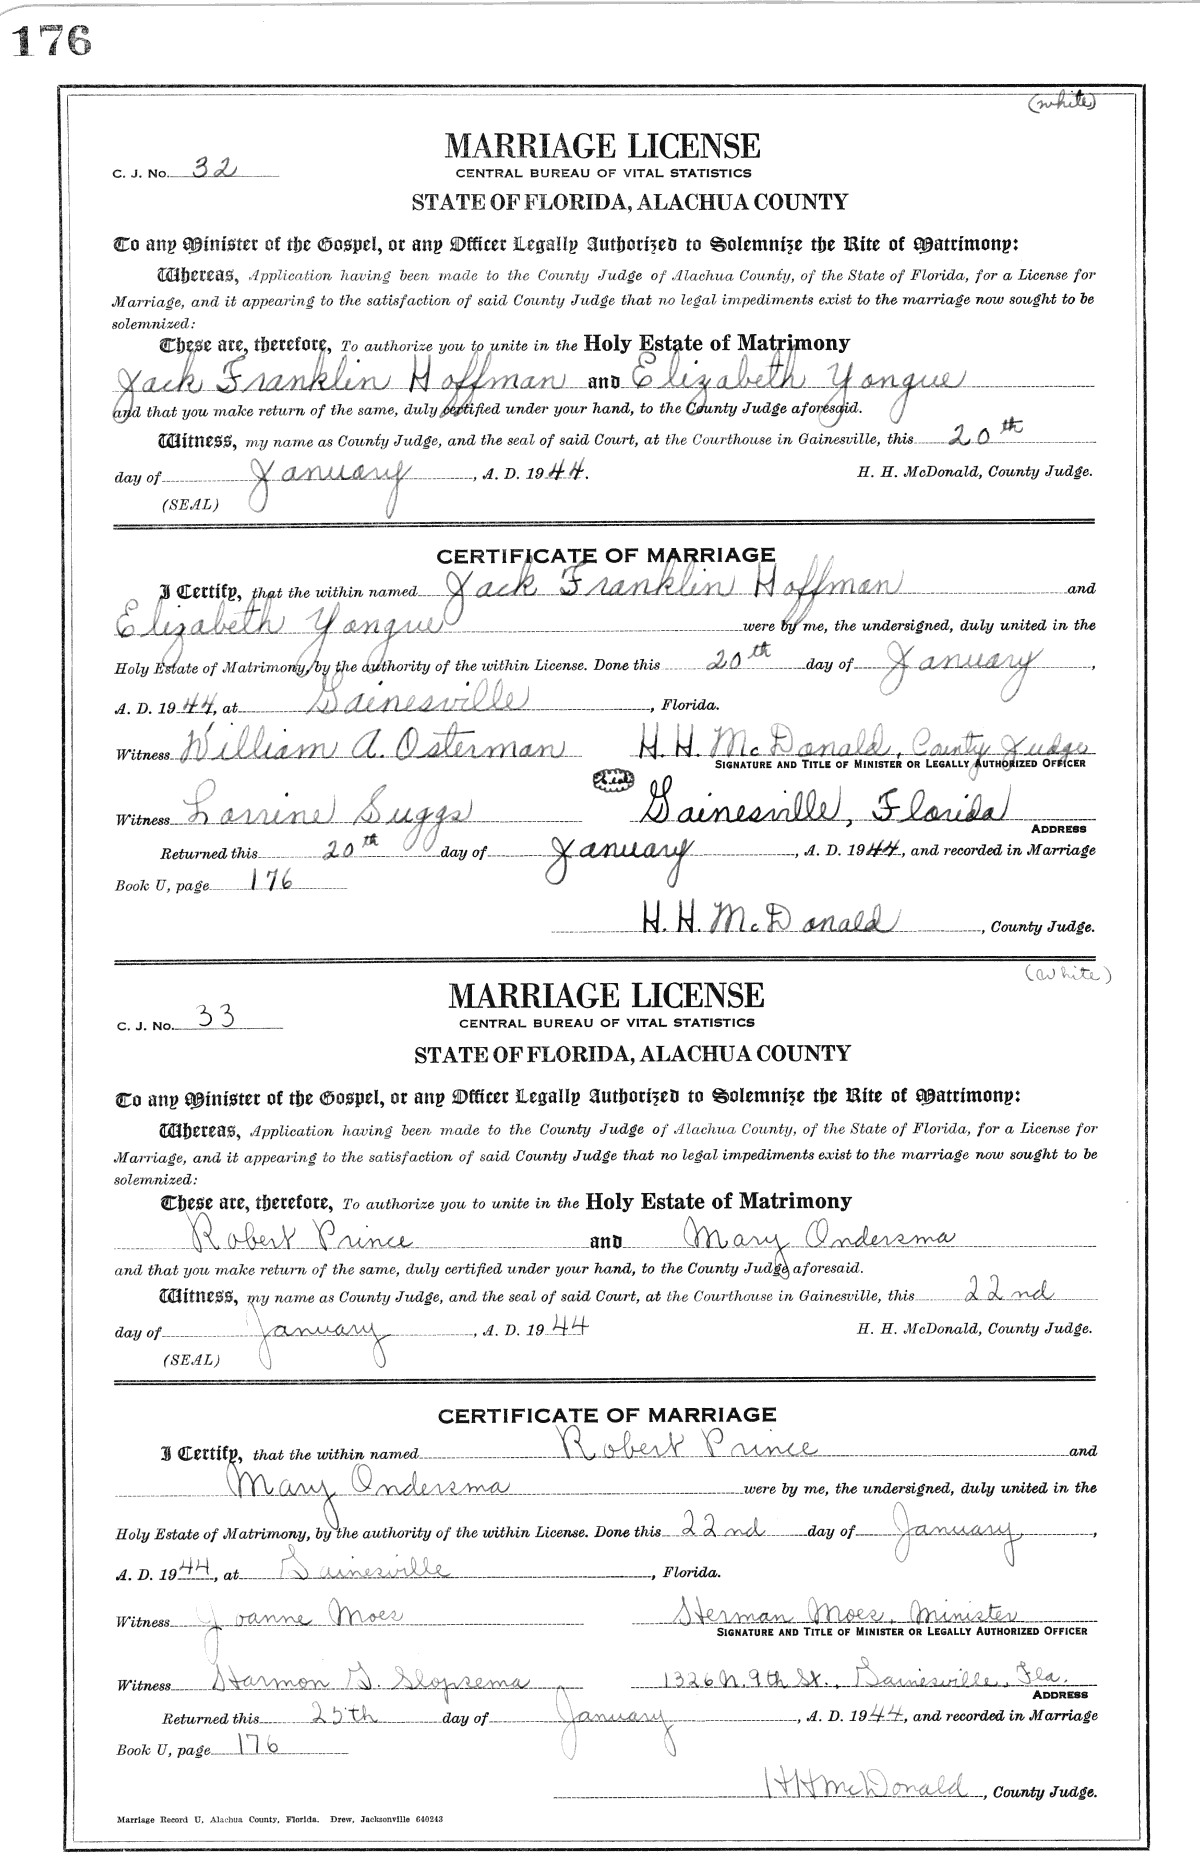 176
(white)
MARRIAGE LICENSE
C. J. No. 32
CENTRAL BUREAU OF VITAL STATISTICS
STATE OF FLORIDA, ALACHUA COUNTY
To any Minister of the Gospel, or any Officer Legally Authorized to Solemnize the Rite of Matrimony:
Whereas, Application having been made to the County Judge of Alachua County, of the State of Florida, for a License for
Marriage, and it appearing to the satisfaction of said County Judge that no legal impediments exist to the marriage now sought to be
solemnized:
These are, therefore, To authorize you to unite in the Holy Estate of Matrimony
Jack Franklin Hoffman and Elizabeth Yongue
and that you make return of the same, duly certified under your hand, to the County Judge aforesaid.
Witness, my name as County Judge, and the seal of said Court, at the Courthouse in Gainesville, this 20th
day of January, A. D. 1944. H. H. McDonald, County Judge.
(SEAL)
CERTIFICATE OF MARRIAGE
I Certify, that the within named Jack Franklin Hoffman and
Elizabeth Yongue were by me, the undersigned, duly united in the
Holy Estate of Matrimony, by the authority of the within License. Done this 20th day of January,
A. D. 1944, at Gainesville, Florida.
Witness William A. Osterman H. H. McDonald, County Judge
SIGNATURE AND TITLE OF MINISTER OR LEGALLY AUTHORIZED OFFICER
Seal
Witness Lorrine Suggs Gainesville, Florida
ADDRESS
Returned this 20th day of January, A. D. 1944, and recorded in Marriage
Book U, page 176
H. H. McDonald, County Judge.
(white)
MARRIAGE LICENSE
C. J. No. 33
CENTRAL BUREAU OF VITAL STATISTICS
STATE OF FLORIDA, ALACHUA COUNTY
To any Minister of the Gospel, or any Officer Legally Authorized to Solemnize the Rite of Matrimony:
Whereas, Application having been made to the County Judge of Alachua County, of the State of Florida, for a License for
Marriage, and it appearing to the satisfaction of said County Judge that no legal impediments exist to the marriage now sought to be
solemnized:
These are, therefore, To authorize you to unite in the Holy Estate of Matrimony
Robert Prince and Mary Ondersma
and that you make return of the same, duly certified under your hand, to the County Judge aforesaid.
Witness, my name as County Judge, and the seal of said Court, at the Courthouse in Gainesville, this 22nd
day of January, A. D. 1944 H. H. McDonald, County Judge.
(SEAL)
CERTIFICATE OF MARRIAGE
I Certify, that the within named Robert Prince and
Mary Ondersma were by me, the undersigned, duly united in the
Holy Estate of Matrimony, by the authority of the within License. Done this 22nd day of January,
A. D. 1944, at Gainesville, Florida.
Witness Joanne Moes Herman Moes, Minister
SIGNATURE AND TITLE OF MINISTER OR LEGALLY AUTHORIZED OFFICER
Witness Harmon G. Slopsema 1326 N. 9th St., Gainesville, Fla.
ADDRESS
Returned this 25th day of January, A. D. 1944, and recorded in Marriage
Book U, page 176
H H McDonald, County Judge.
Marriage Record U, Alachua County, Florida. Drew, Jacksonville 640243